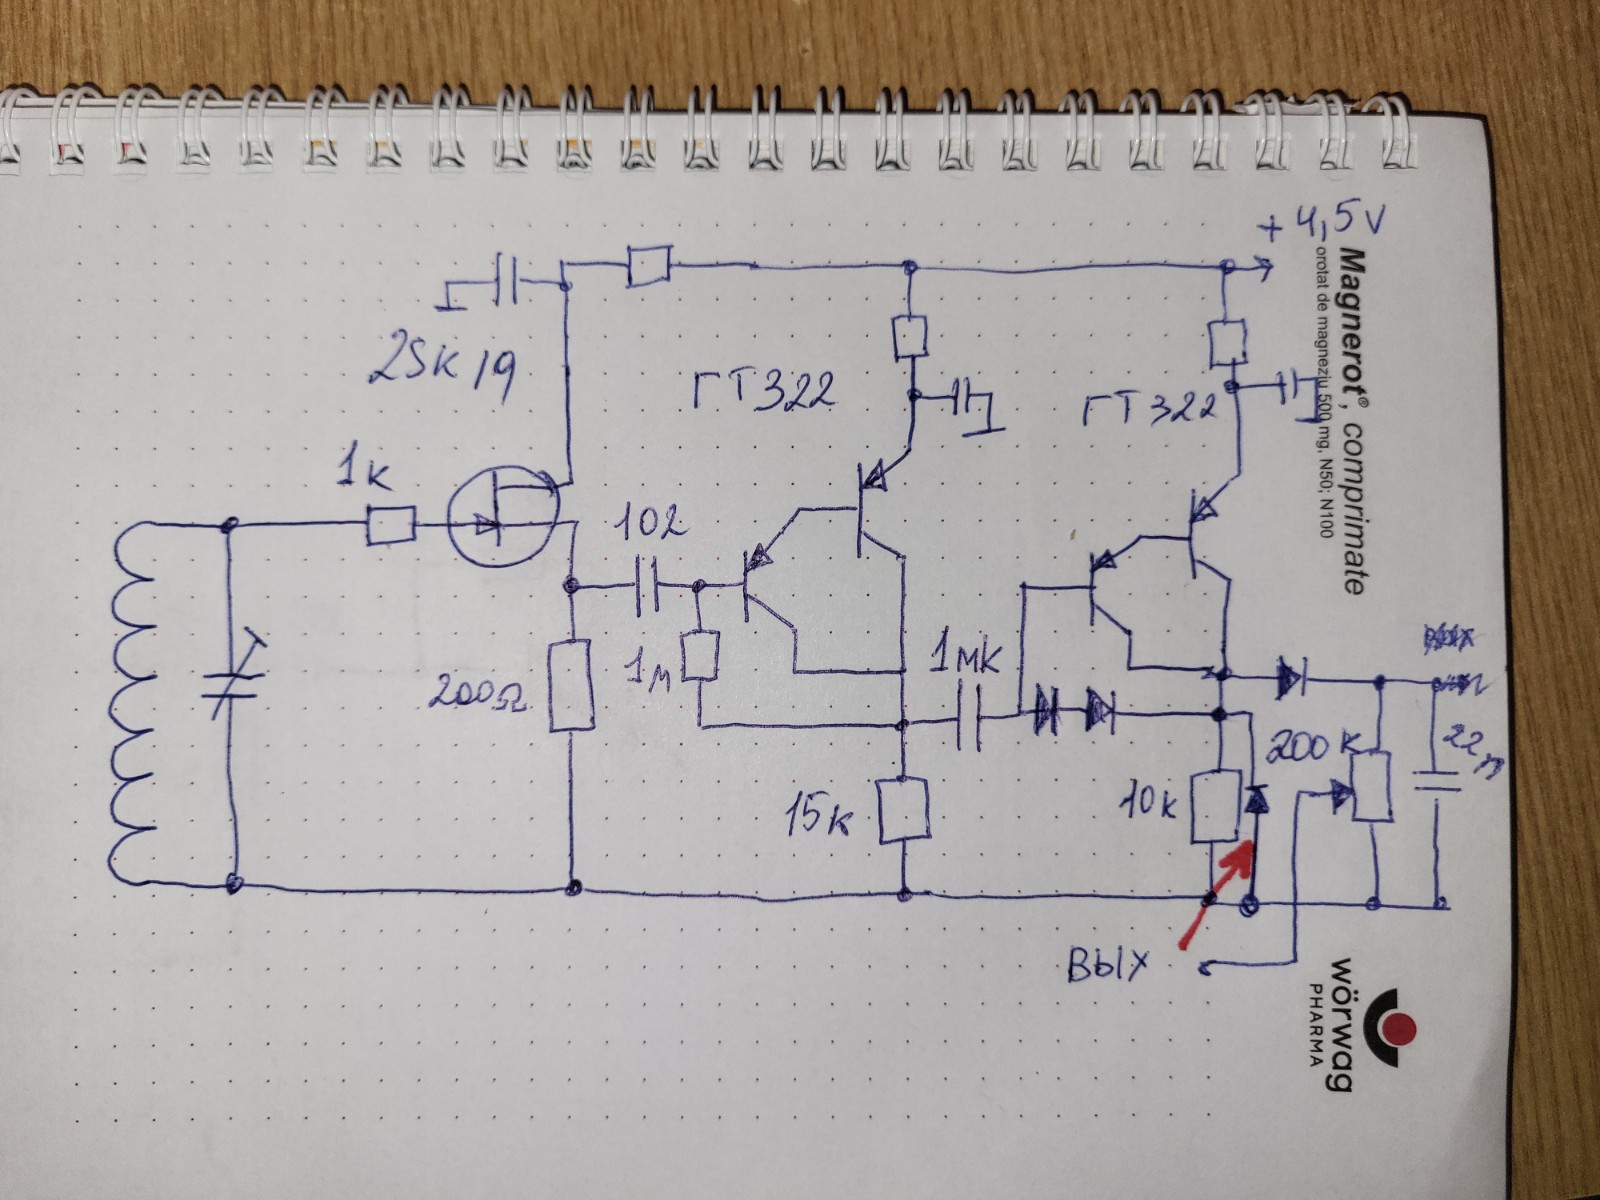 + 4,5 V
2SK19
ГТ322
ГТ322
1к
102
200Ω
1м
1мк
15к
10к
200к
ВЫХ
Magnerot®, comprimate
orotat de magneziu 500 mg, N50; N100
wörwag
PHARMA